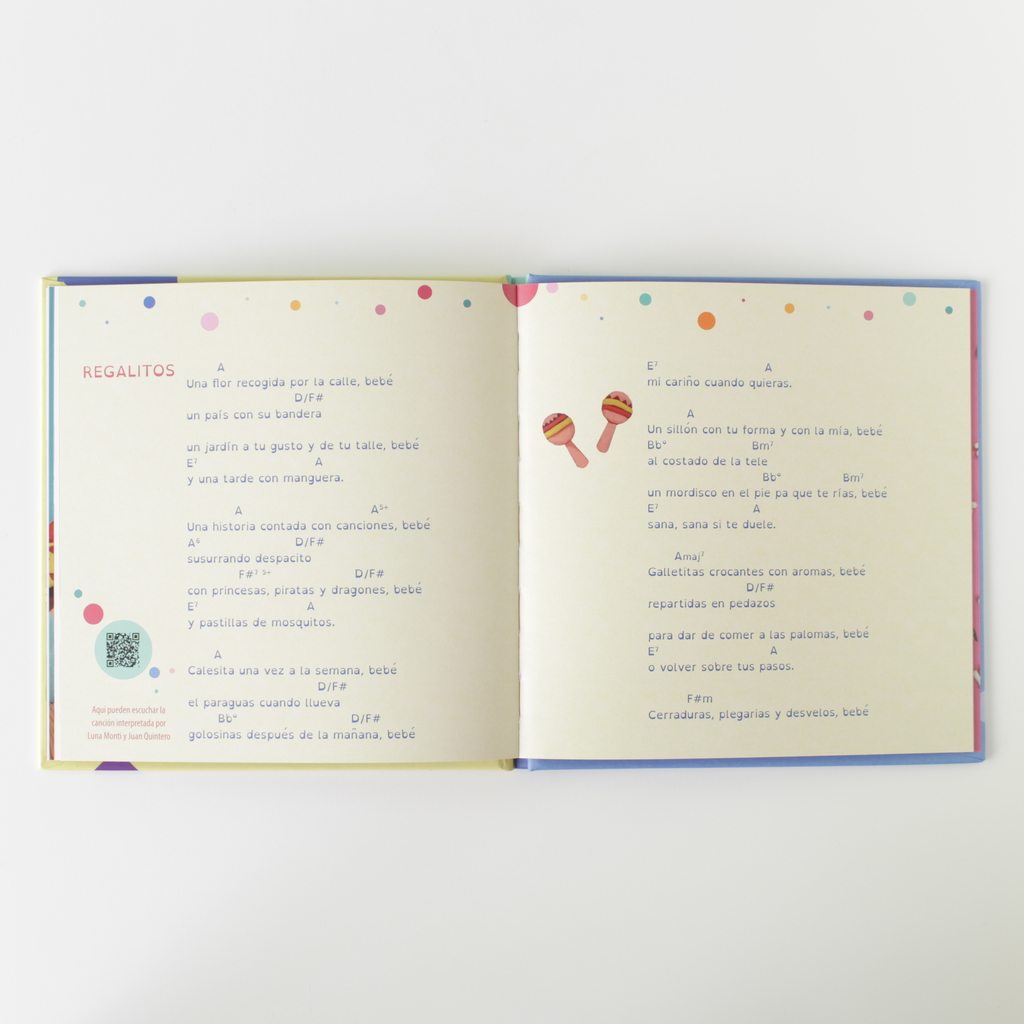 REGALITOS
A
Una flor recogida por la calle, bebé
D/F#
un país con su bandera
un jardín a tu gusto y de tu talle, bebé
E⁷ A
y una tarde con manguera.
A A⁵⁺
Una historia contada con canciones, bebé
A⁶ D/F#
susurrando despacito
F#⁷ ⁵⁺ D/F#
con princesas, piratas y dragones, bebé
E⁷ A
y pastillas de mosquitos.
A
Calesita una vez a la semana, bebé
D/F#
el paraguas cuando llueva
Bb° D/F#
golosinas después de la mañana, bebé
Aquí pueden escuchar la
canción interpretada por
Luna Monti y Juan Quintero
E⁷ A
mi cariño cuando quieras.
A
Un sillón con tu forma y con la mía, bebé
Bb° Bm⁷
al costado de la tele
Bb° Bm⁷
un mordisco en el pie pa que te rías, bebé
E⁷ A
sana, sana si te duele.
Amaj⁷
Galletitas crocantes con aromas, bebé
D/F#
repartidas en pedazos
para dar de comer a las palomas, bebé
E⁷ A
o volver sobre tus pasos.
F#m
Cerraduras, plegarias y desvelos, bebé